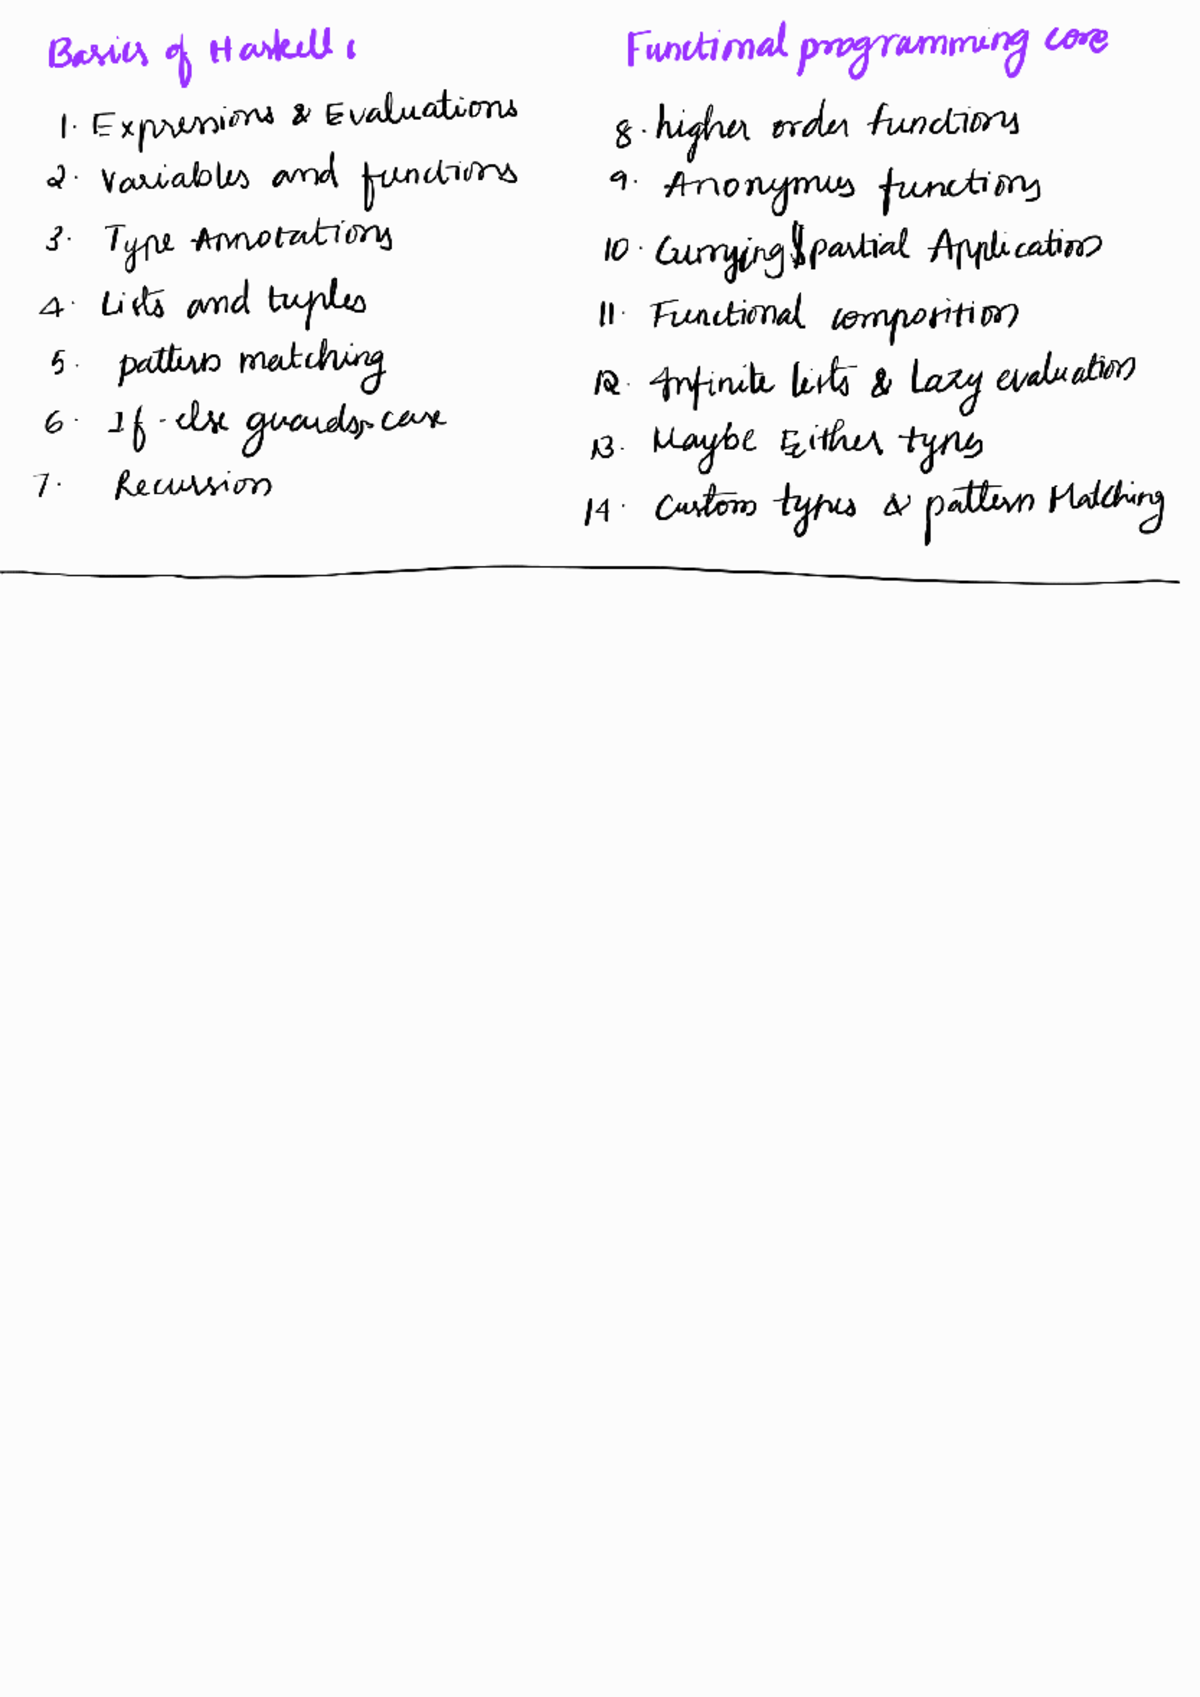 Basics of Haskell :
1. Expressions & Evaluations
2. Variables and functions
3. Type Annotations
4. Lists and tuples
5. pattern matching
6. If-else guards, case
7. Recursion
Functional programming core
8. higher order functions
9. Anonymus functions
10. Currying & partial Application
11. Functional composition
12. Infinite lists & Lazy evaluation
13. Maybe Either types
14. Custom types & pattern Matching